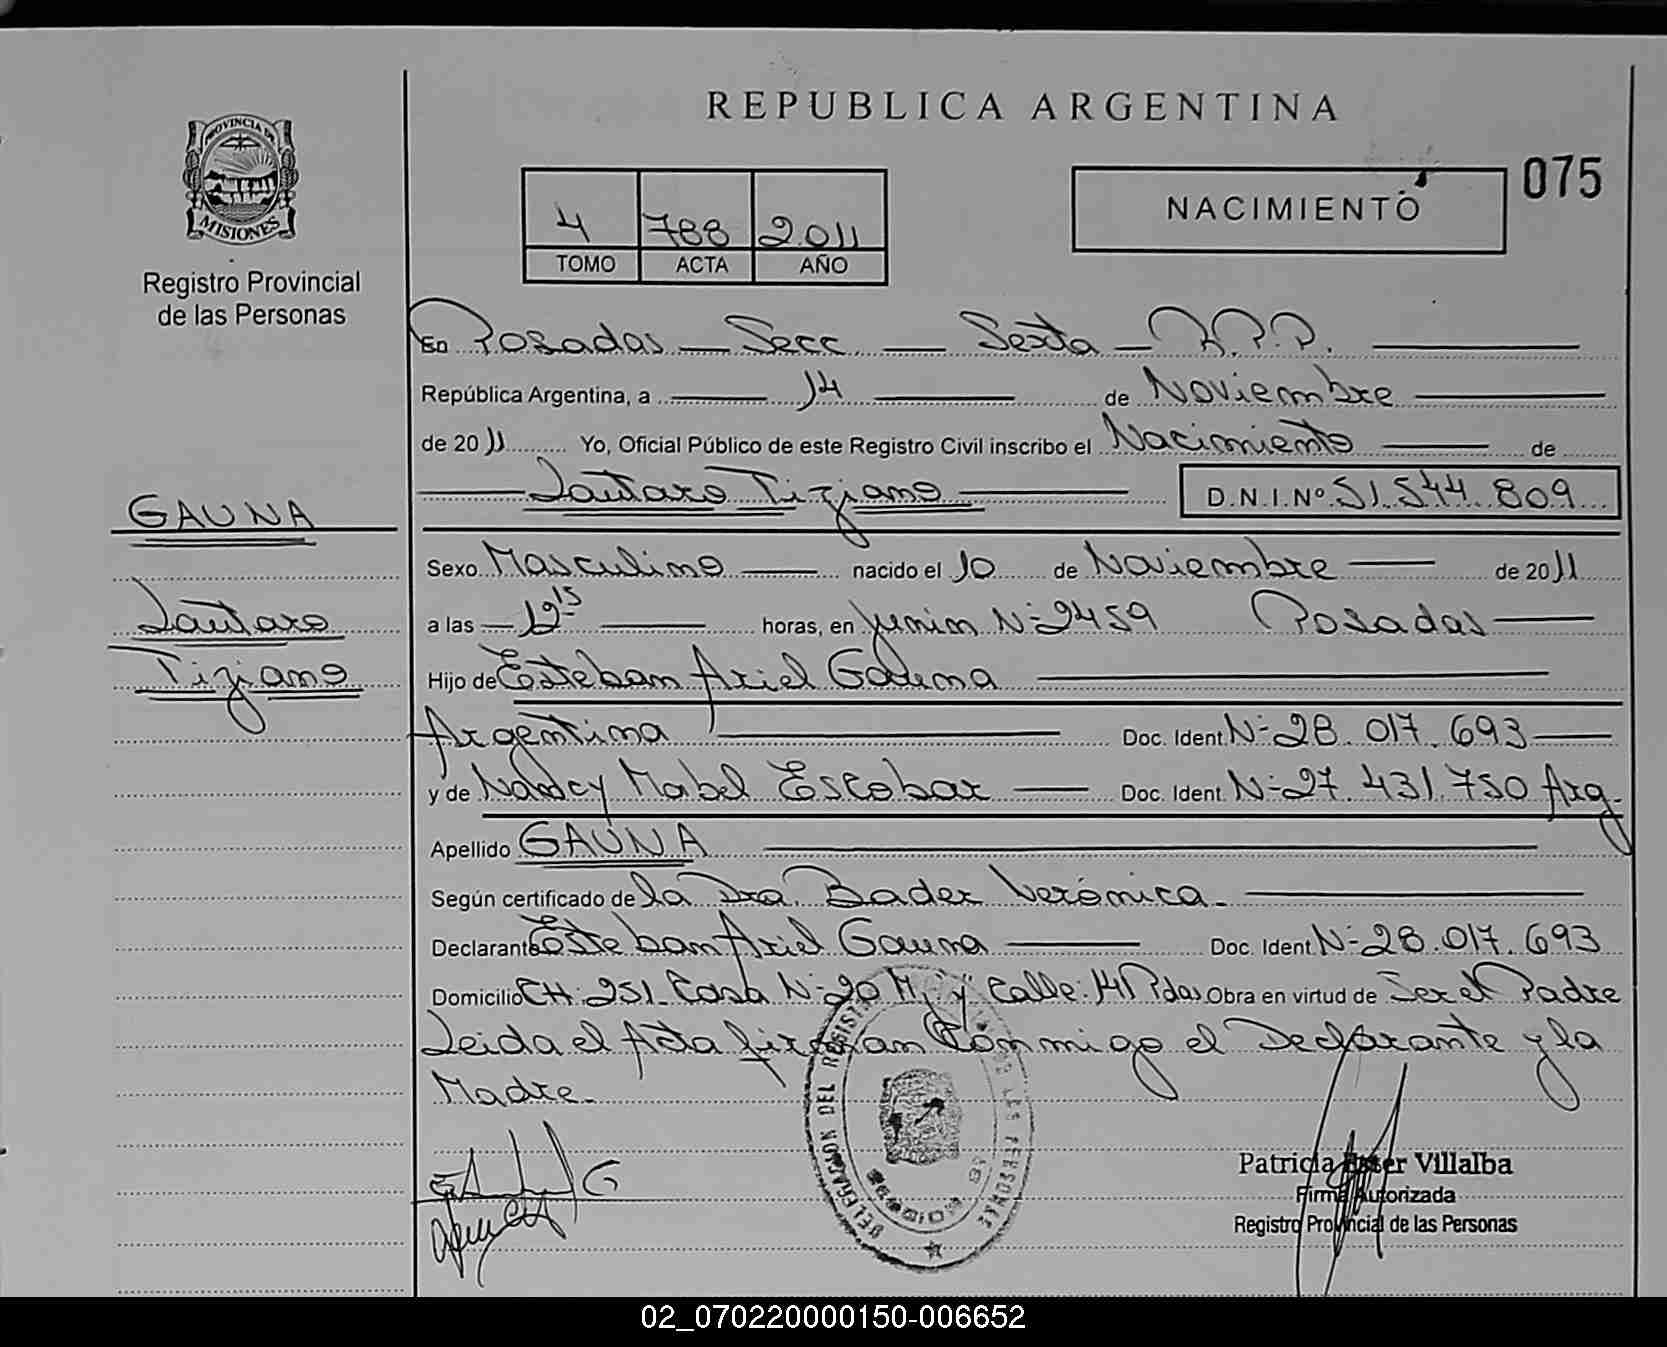 REPUBLICA ARGENTINA
PROVINCIA DE
MISIONES
Registro Provincial
de las Personas
4 788 2.011
TOMO ACTA AÑO
NACIMIENTO
075
En Posadas — Secc — Sexta — R.P.P.
República Argentina, a 14 de Noviembre
de 2011 Yo, Oficial Público de este Registro Civil inscribo el Nacimiento de
Lautaro Tiziano D.N.I.Nº 51.544.809
GAUNA
Lautaro
Tiziano
Sexo Masculino nacido el 10 de Noviembre de 2011
a las 12 15 horas, en Junin Nº 2459 Posadas
Hijo de Esteban Ariel Gauna
Argentina Doc. Ident Nº 28.017.693
y de Nancy Mabel Escobar Doc. Ident. Nº 27.431.750 Arg.
Apellido GAUNA
Según certificado de la Dra. Bader Verónica.
Declarante Esteban Ariel Gauna Doc. Ident Nº 28.017.693
Domicilio CH. 251. Casa Nº 20 Calle: Pdas Obra en virtud de Ser el Padre
Leida el Acta firman Conmigo el Declarante y la
Madre.
DEL REGISTRO DE LAS PERSONAS
Patricia Ester Villalba
Firma Autorizada
Registro Provincial de las Personas
02_070220000150-006652